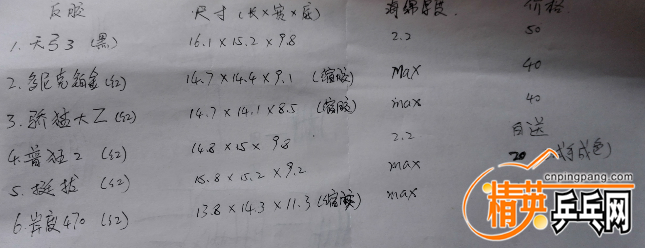 反胶 尺寸(长×宽×底) 海绵厚度 价格
1. 天弓3 (黑) 16.1×15.2×9.8 2.2 50
2. 多尼克铂金(红) 14.7×14.4×9.1 (缩胶) max 40
3. 骄猛大乙(红) 14.7×14.1×8.5 (缩胶) max 40
4. 普狂2 (红) 14.8×15×9.8 2.2 白送
5. 挺拔 (红) 15.8×15.2×9.2 max 20 (成色)
6. 岸度470 (红) 13.8×14.3×11.3(缩胶) max
cnpingpang.com
精英乒乓网